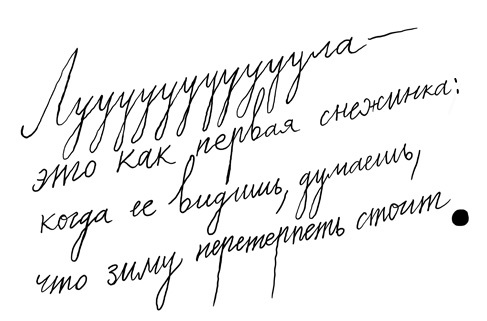 Лууууууууууула —
это как первая снежинка:
когда ее видишь, думаешь,
что зиму перетерпеть стоит.